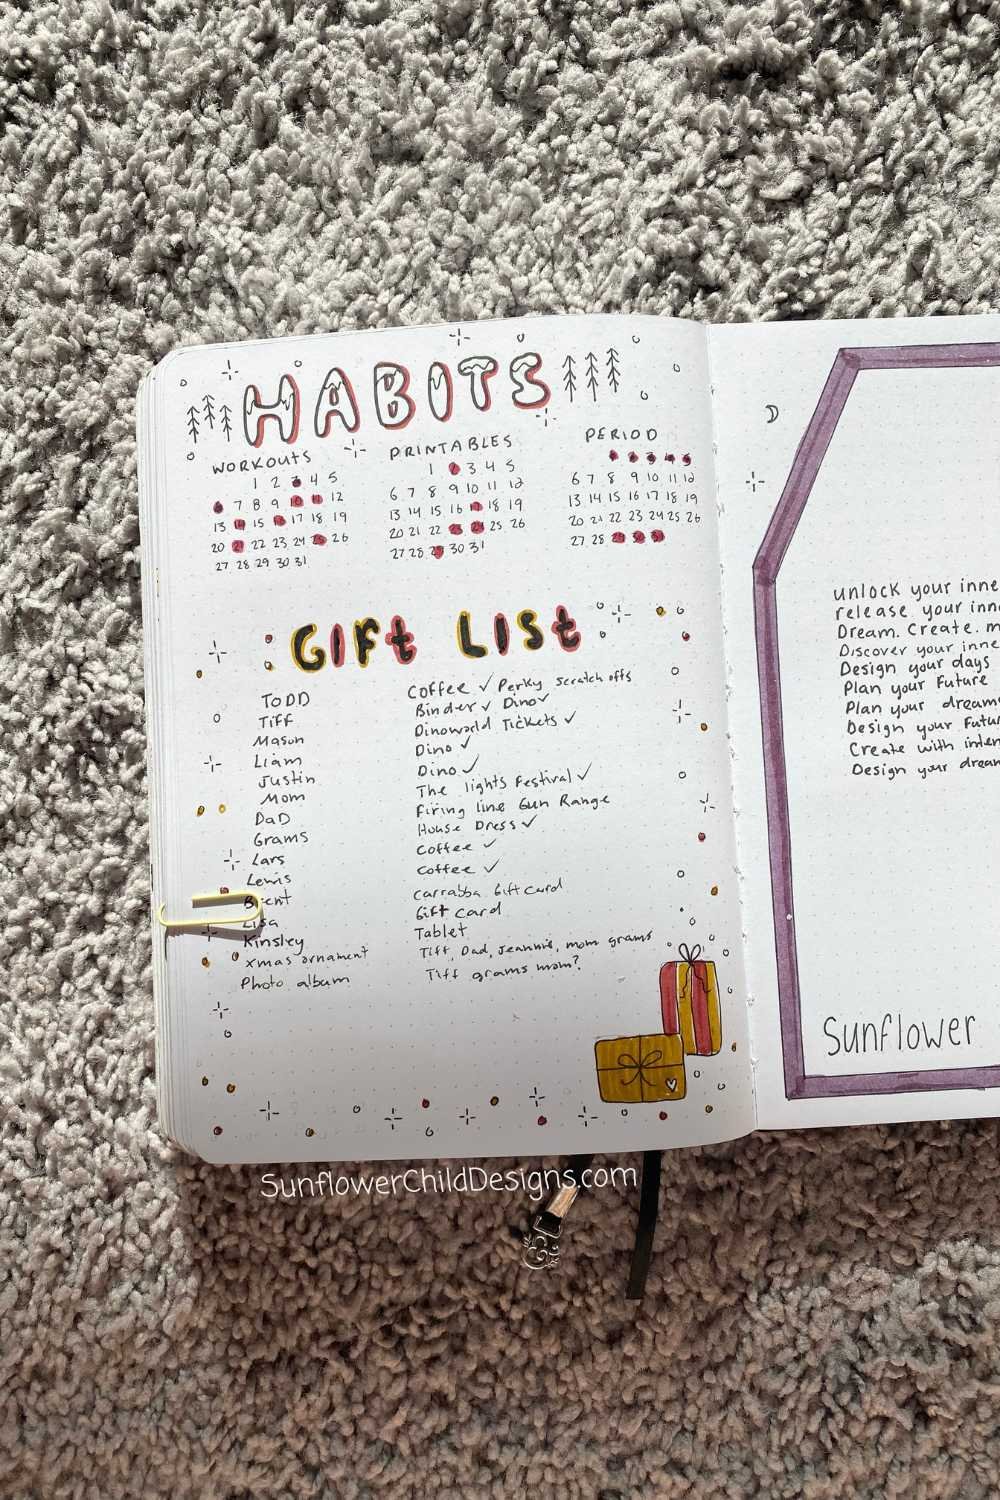 HABITS
WORKOUTS
1 2 3 4 5
6 7 8 9 10 11 12
13 14 15 16 17 18 19
20 21 22 23 24 25 26
27 28 29 30 31
PRINTABLES
1 2 3 4 5
6 7 8 9 10 11 12
13 14 15 16 17 18 19
20 21 22 23 24 25 26
27 28 29 30 31
PERIOD
1 2 3 4 5
6 7 8 9 10 11 12
13 14 15 16 17 18 19
20 21 22 23 24 25 26
27 28 29 30 31
Gift List
TODD Coffee ✓ Perky Scratch offs
Tiff Binder ✓ Dino ✓
Mason Dinoworld Tickets ✓
Liam Dino ✓
Justin Dino ✓
Mom The lights Festival ✓
DaD Firing line Gun Range
Grams House Dress ✓
Lars Coffee ✓
Lewis Coffee ✓
Brent carrabba Gift card
Lisa Gift card
Kinsley Tablet
xmas ornament Tiff, Dad, Jeannie, mom grams
Photo album Tiff grams mom?
unlock your inne
release your inn
Dream. Create. m
Discover your inne
Design your days
Plan your Future
Plan your dream
Design your Futu
Create with inten
Design your dream
Sunflower
SunflowerChildDesigns.com